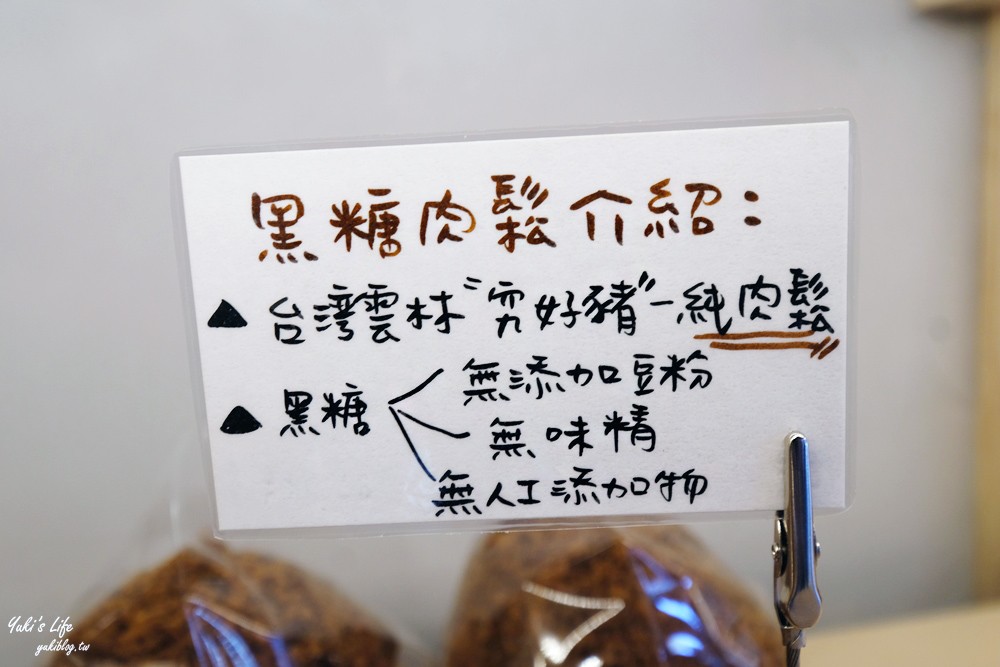 黑糖肉鬆介紹：
▲ 台灣雲林"究好豬"-純肉鬆
▲ 黑糖
無添加豆粉
無味精
無人工添加物
Yuki's Life
yukiblog.tw